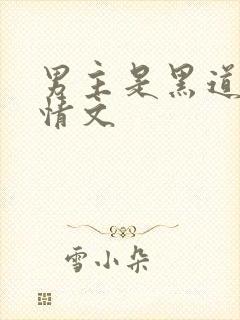 男主是黑道
情文
雪小朵